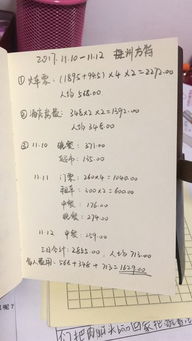 2017.11.10 — 11.12 株洲方特
① 火车票: (189.5+94.5)×4×2=2272.00
人均 568.00
② 酒店房费: 348×2×2=1392.00
人均 348.00
③ 11.10 晚餐: 371.00
135.00
11.11 门票: 260×4=1040.00
租车: 300×2=600.00
中餐: 176.00
晚餐: 274.00
11.12 中餐: 259.00
三日合计: 2855.00, 人均 713.00
每人费用: 568+348+713=1629.00